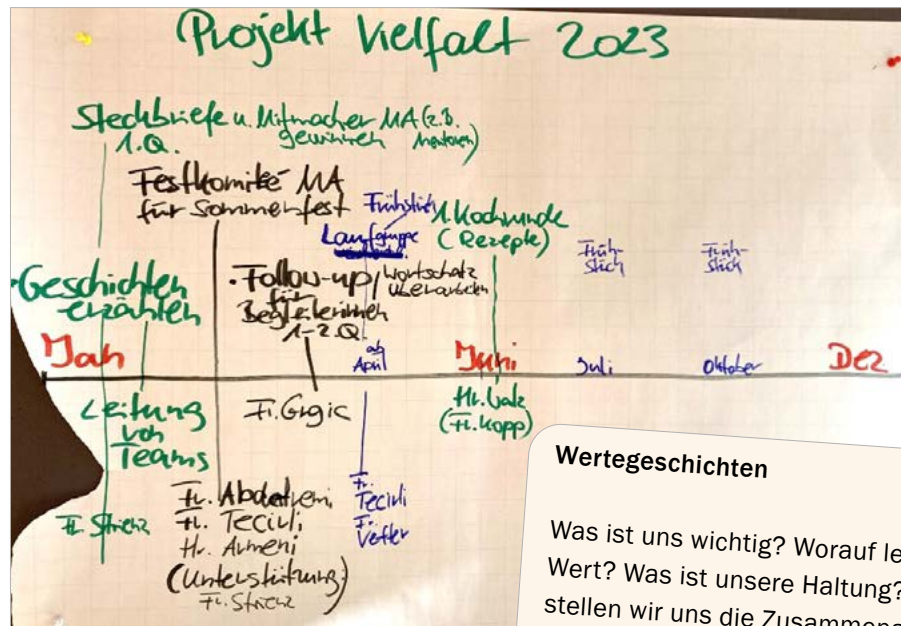 Projekt Vielfalt 2023
Steckbriefe u. Mitmacher MA (z.B.
1.Q. gewinnen Mentoren)
Festkomitee MA
für Sommerfest
Frühstück
Laufgruppe
1. Kochrunde
(Rezepte)
Früh-
stück
Früh-
stück
Geschichten
erzählen
Follow-up
für
Begleiterinnen
1-2.Q.
Wortschatz
überarbeiten
Jan
ab
April
Juni
Juli
Oktober
Dez
Leitung
von
Teams
Fr. Grgic
Fr.
Fr. Strienz
Fr.
Fr. Tecirli
Hr. Armeni
(Unterstützung:
Fr. Strienz
Fr.
Tecirli
Fr.
Vetter
Hr.
(Fr. Kopp)
Wertegeschichten
Was ist uns wichtig? Worauf le
Wert? Was ist unsere Haltung?
stellen wir uns die